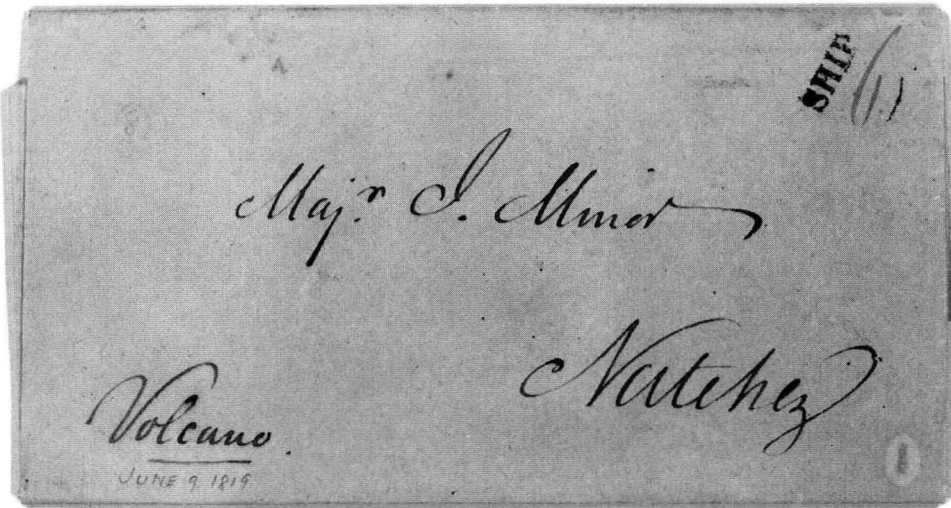 SHIP
Majr. J. Minor
Natchez
Volcano.
JUNE 9 1819